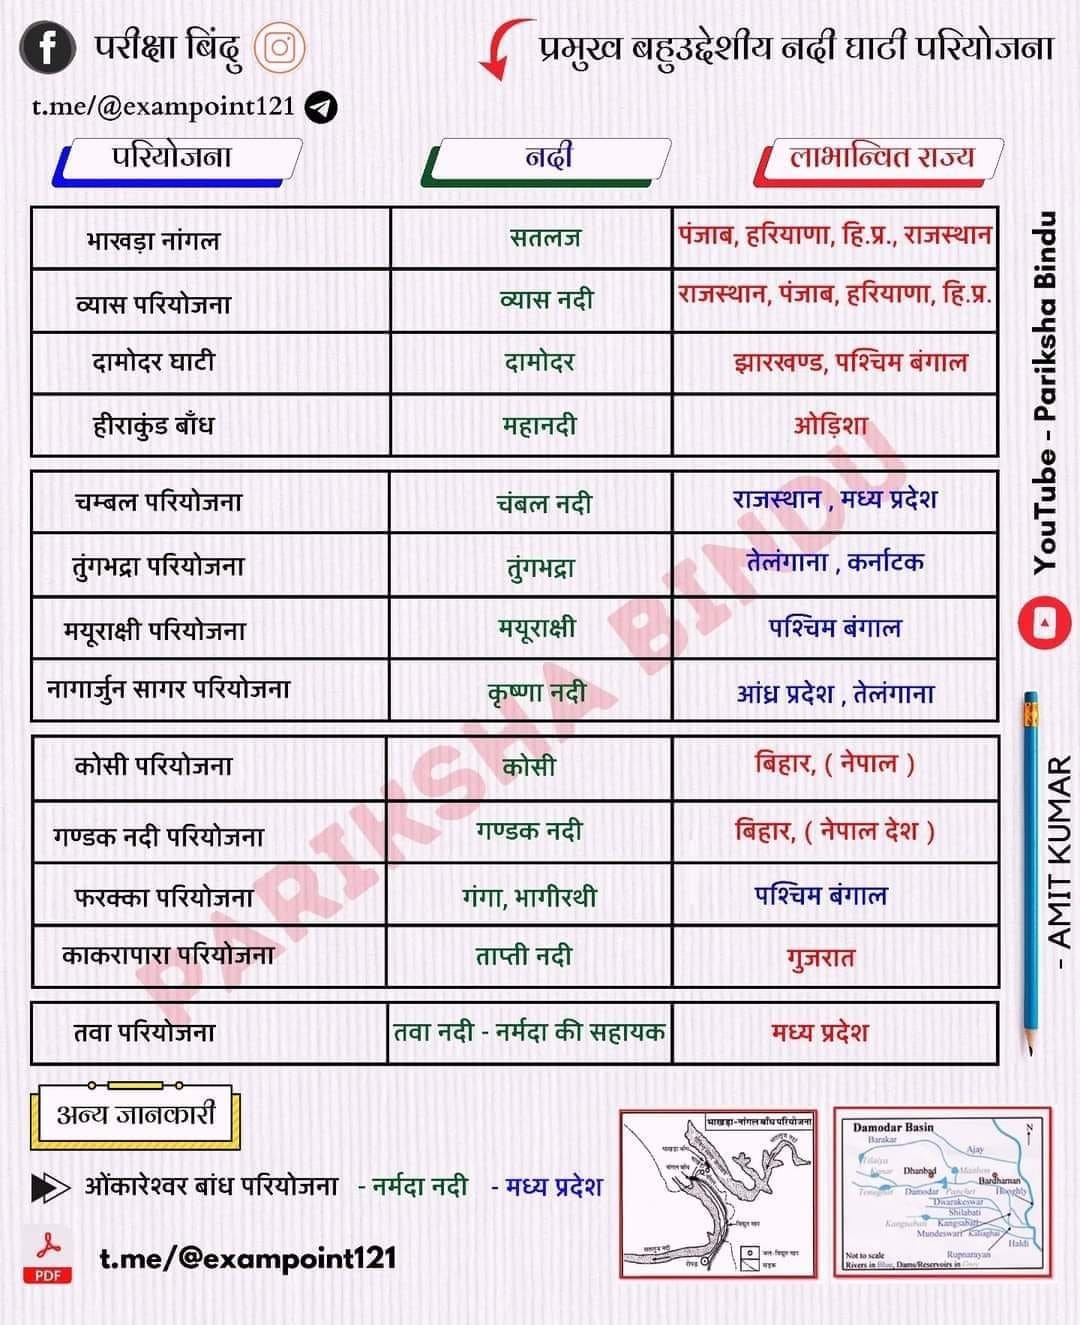 परीक्षा बिंदु
प्रमुख बहुउद्देशीय नदी घाटी परियोजना
t.me/@exampoint121
परियोजना नदी लाभान्वित राज्य
भाखड़ा नांगल सतलज पंजाब, हरियाणा, हि.प्र., राजस्थान
व्यास परियोजना व्यास नदी राजस्थान, पंजाब, हरियाणा, हि.प्र.
दामोदर घाटी दामोदर झारखण्ड, पश्चिम बंगाल
हीराकुंड बाँध महानदी ओड़िशा
चम्बल परियोजना चंबल नदी राजस्थान , मध्य प्रदेश
तुंगभद्रा परियोजना तुंगभद्रा तेलंगाना , कर्नाटक
मयूराक्षी परियोजना मयूराक्षी पश्चिम बंगाल
नागार्जुन सागर परियोजना कृष्णा नदी आंध्र प्रदेश , तेलंगाना
कोसी परियोजना कोसी बिहार, ( नेपाल )
गण्डक नदी परियोजना गण्डक नदी बिहार, ( नेपाल देश )
फरक्का परियोजना गंगा, भागीरथी पश्चिम बंगाल
काकरापारा परियोजना ताप्ती नदी गुजरात
तवा परियोजना तवा नदी - नर्मदा की सहायक मध्य प्रदेश
PARIKSHA BINDU
YouTube - Pariksha Bindu
- AMIT KUMAR
अन्य जानकारी
ओंकारेश्वर बांध परियोजना - नर्मदा नदी - मध्य प्रदेश
PDF
t.me/@exampoint121
भाखड़ा-नांगल बाँध परियोजना
रोपड़
सड़क
Damodar Basin
N
Barakar
Ajay
Tilaiya
Konar
Dhanbad
Maithon
Bardhaman
Tenughat
Damodar
Panchet
Hooghly
Dwarakeswar
Shilabati
Kangsabati
Kangsabati
Mundeswari
Kaliaghai
Haldi
Rupnarayan
Not to scale
Rivers in Blue, Dams/Reservoirs in Grey